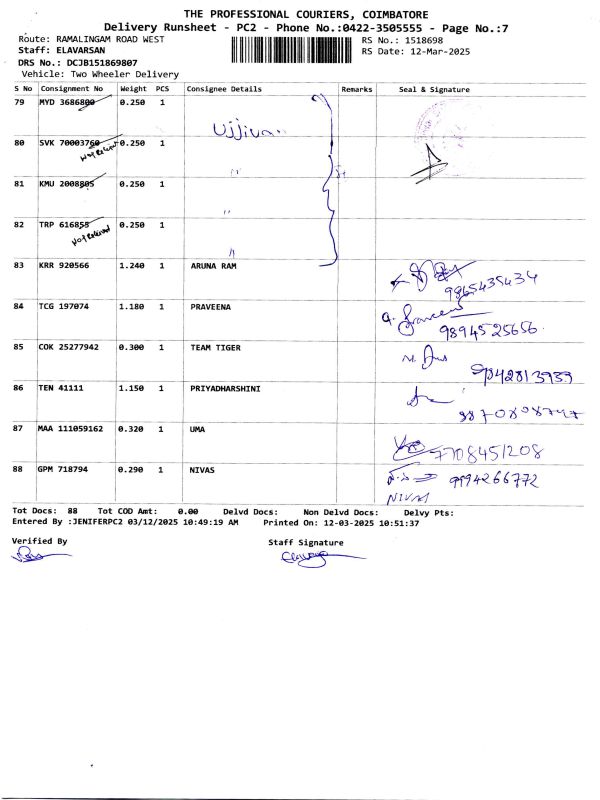 THE PROFESSIONAL COURIERS, COIMBATORE
Delivery Runsheet - PC2 - Phone No.:0422-3505555 - Page No.:7
Route: RAMALINGAM ROAD WEST
RS No.: 1518698
Staff: ELAVARSAN
RS Date: 12-Mar-2025
DRS No.: DCJB151869807
Vehicle: Two Wheeler Delivery
S No Consignment No Weight PCS Consignee Details Remarks Seal & Signature
79 MYD 3686800 0.250 1
Ujjivan
80 SVK 70003760 0.250 1
Not Received
81 KMU 2008805 0.250 1 "
82 TRP 616855 0.250 1 "
Not Received
"
83 KRR 920566 1.240 1 ARUNA RAM
9865435434
84 TCG 197074 1.180 1 PRAVEENA
9894525656
85 COK 25277942 0.300 1 TEAM TIGER
9842813939
86 TEN 41111 1.150 1 PRIYADHARSHINI
87 MAA 111059162 0.320 1 UMA
7708451208
88 GPM 718794 0.290 1 NIVAS
9994266772
NIVAS
Tot Docs: 88 Tot COD Amt: 0.00 Delvd Docs: Non Delvd Docs: Delvy Pts:
Entered By :JENIFERPC2 03/12/2025 10:49:19 AM Printed On: 12-03-2025 10:51:37
Verified By Staff Signature